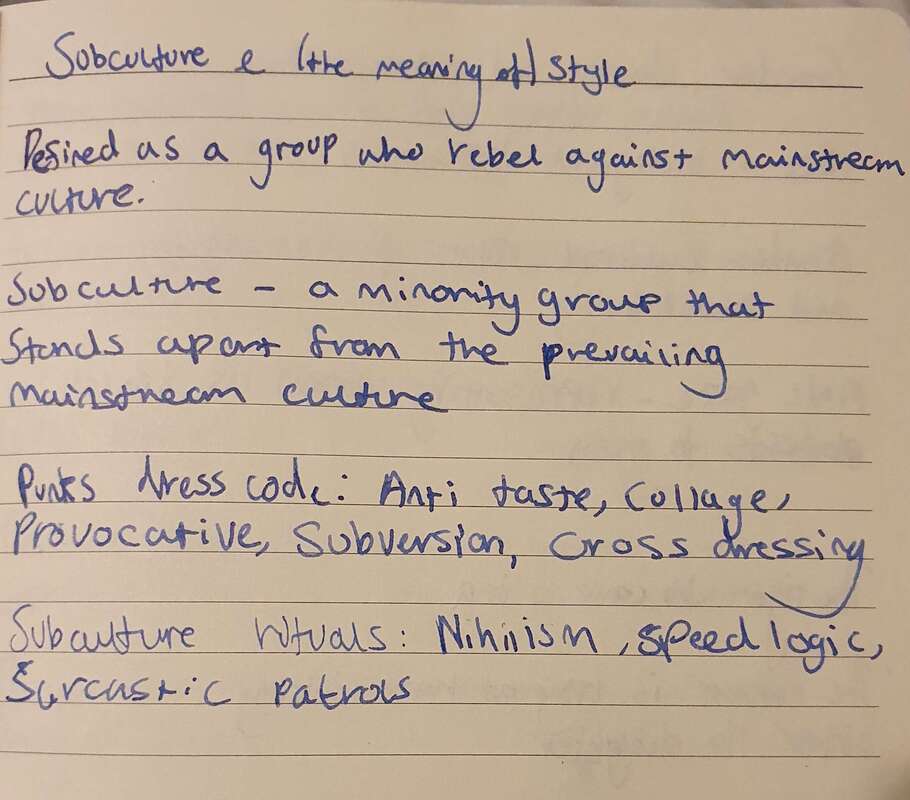 Subculture & (the meaning of) Style
Desired as a group who rebel against mainstream
culture.
Subculture - a minority group that
Stands apart from the prevailing
mainstream culture
Punks dress code: Anti taste, Collage,
Provocative, Subversion, Cross dressing
Subculture rituals: Nihilism, speed logic,
Sarcastic patrols